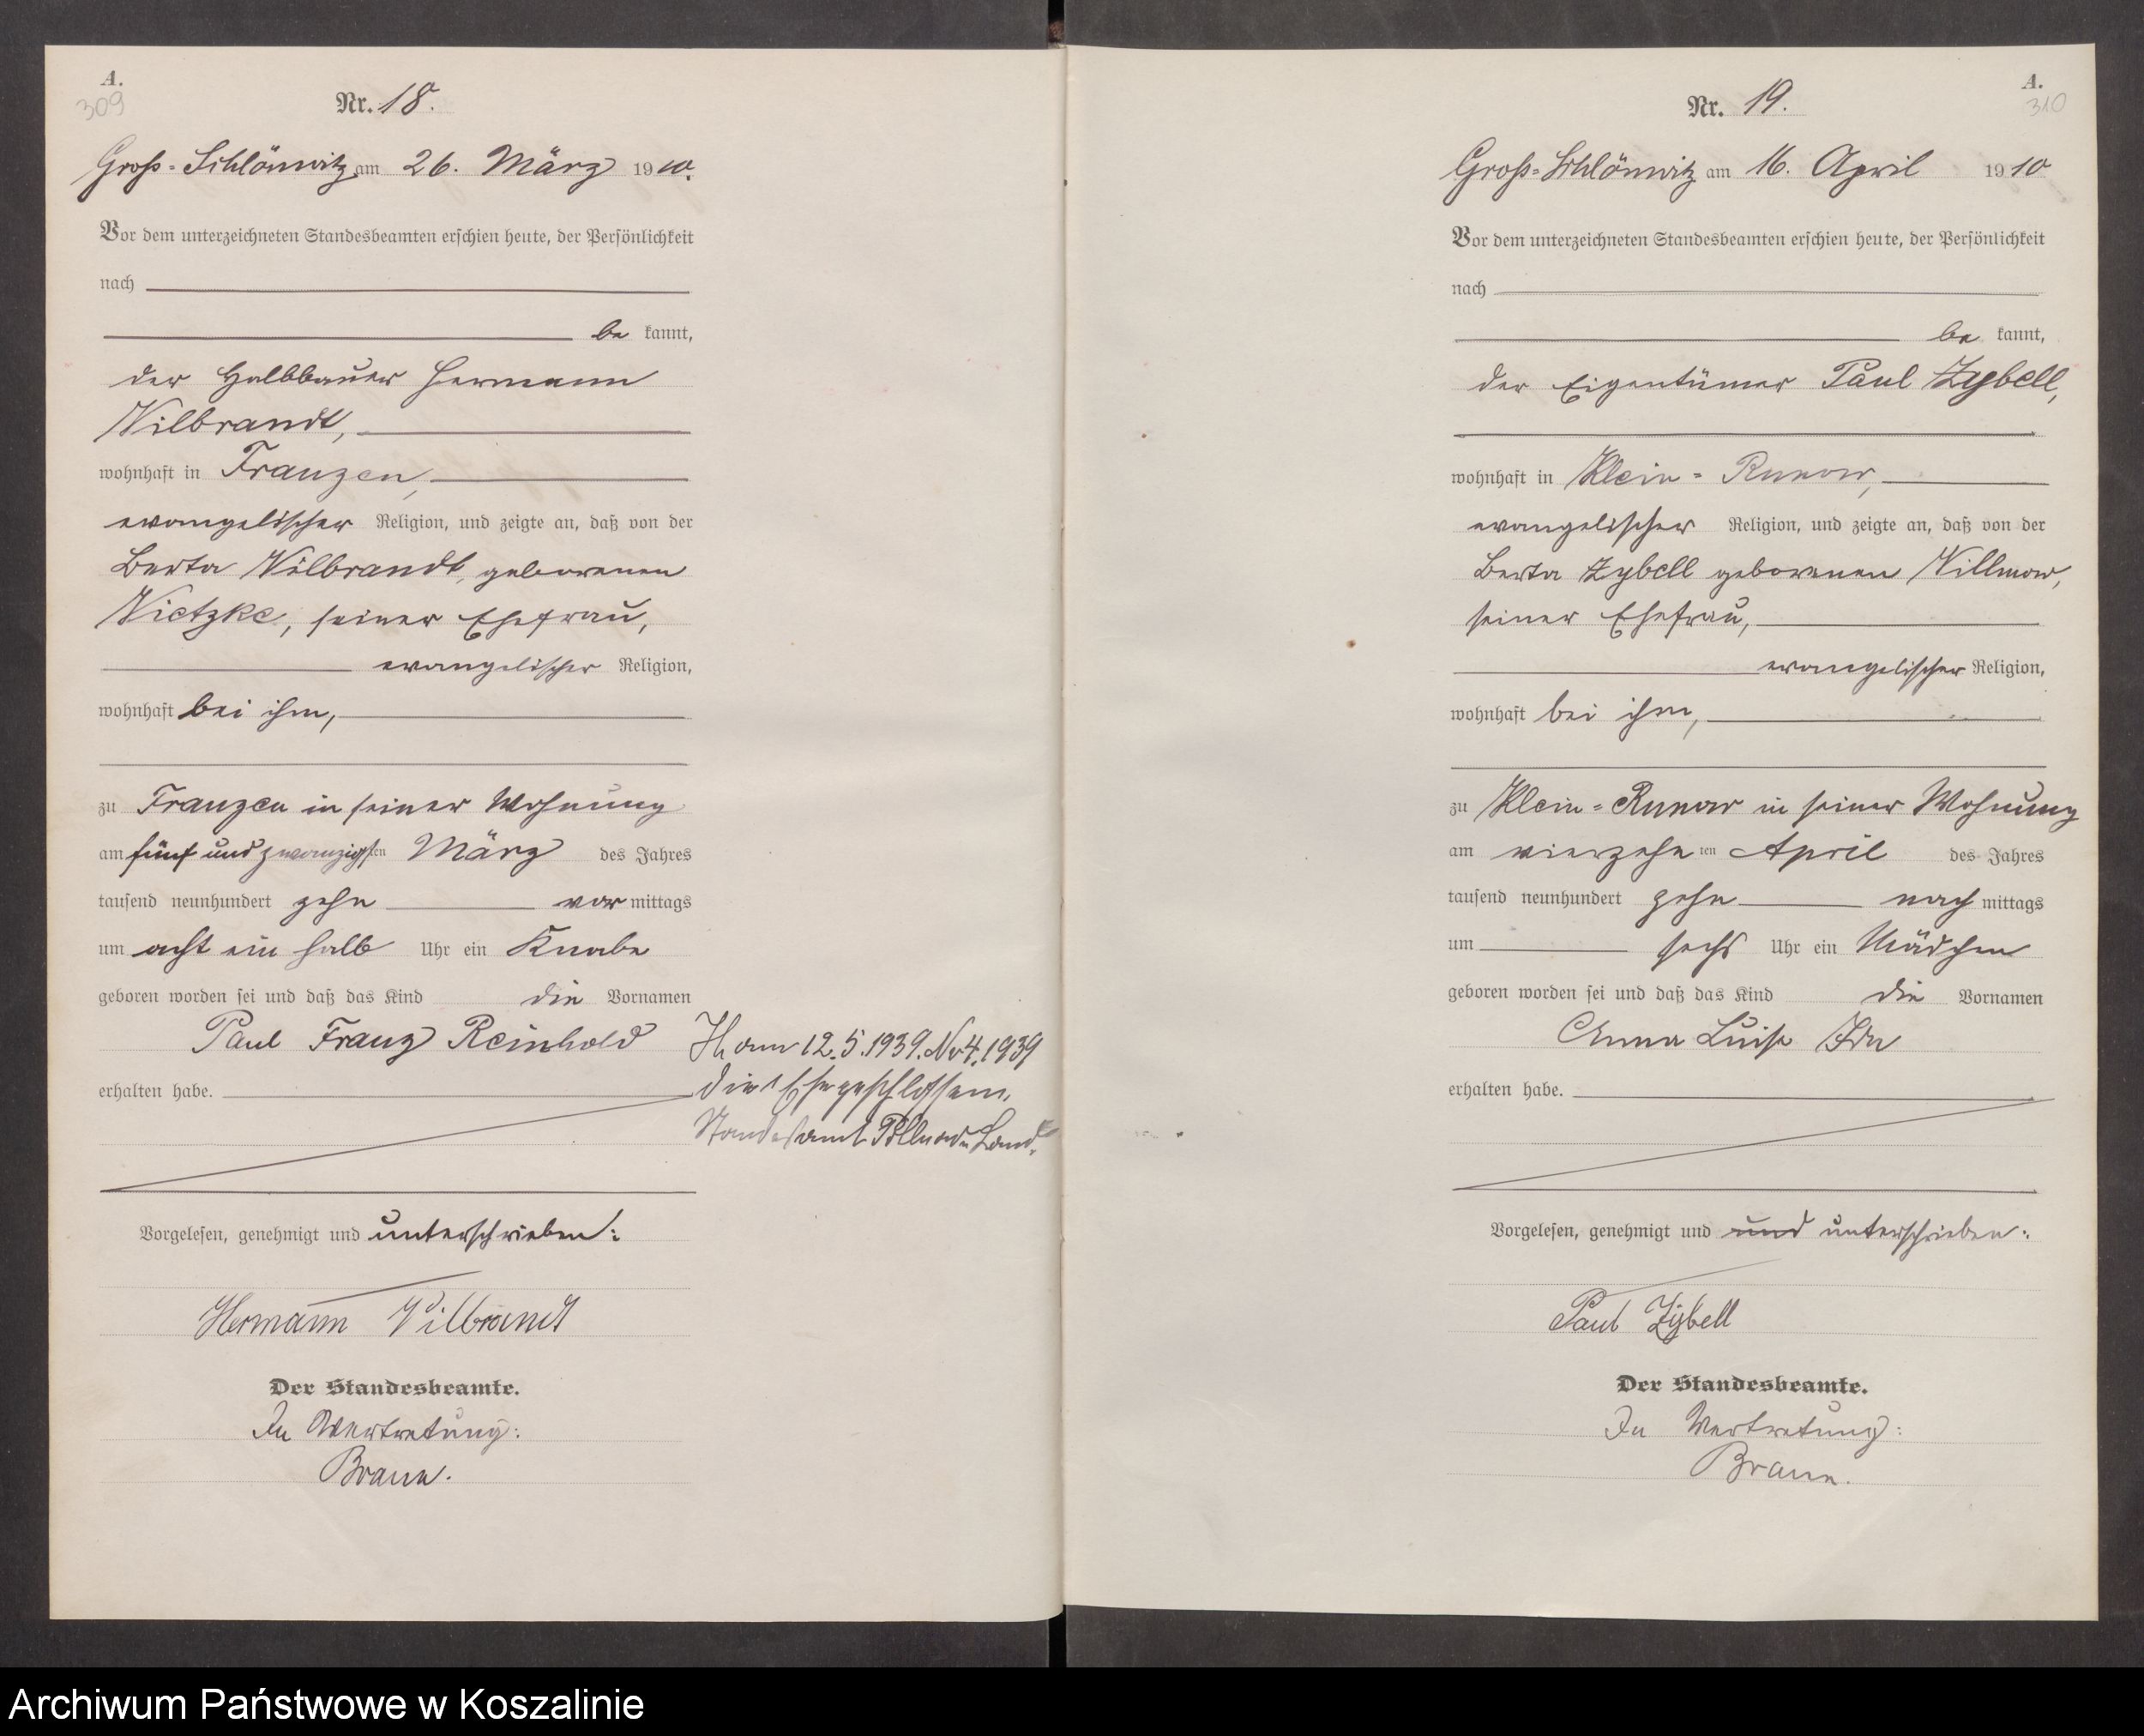 A.
309
Nr. 18.
Groß-Schlönwitz am 26. März 1910.
Vor dem unterzeichneten Standesbeamten erschien heute, der Persönlichkeit
nach
be kannt,
der Halbbauer Hermann
Vilbrandt,
wohnhaft in Franzen,
evangelischer Religion, und zeigte an, daß von der
Berta Vilbrandt, geborenen
Vietzke, seiner Ehefrau,
evangelischer Religion,
wohnhaft bei ihm,
zu Franzen in seiner Wohnung
am fünf und zwanzigsten März des Jahres
tausend neunhundert zehn vor mittags
um acht ein halb Uhr ein Knabe
geboren worden sei und daß das Kind die Vornamen
Paul Franz Reinhold
erhalten habe.
H am 12.5.1939. Nr 4.1939
die Ehe geschlossen.
Standesamt Pollnow-Land.
Vorgelesen, genehmigt und unterschrieben:
Hermann Vilbrandt
Der Standesbeamte.
In Vertretung:
Braun.
A.
310
Nr. 19.
Groß-Schlönwitz am 16. April 1910
Vor dem unterzeichneten Standesbeamten erschien heute, der Persönlichkeit
nach
be kannt,
der Eigentümer Paul Zybell,
wohnhaft in Klein-Runow,
evangelischer Religion, und zeigte an, daß von der
Berta Zybell geborenen Villmow,
seiner Ehefrau,
evangelischer Religion,
wohnhaft bei ihm,
zu Klein-Runow in seiner Wohnung
am vierzehn ten April des Jahres
tausend neunhundert zehn nach mittags
um sechs Uhr ein Mädchen
geboren worden sei und daß das Kind die Vornamen
Anna Luise Ida
erhalten habe.
Vorgelesen, genehmigt und und unterschrieben:
Paul Zybell
Der Standesbeamte.
In Vertretung:
Braun.
Archiwum Państwowe w Koszalinie